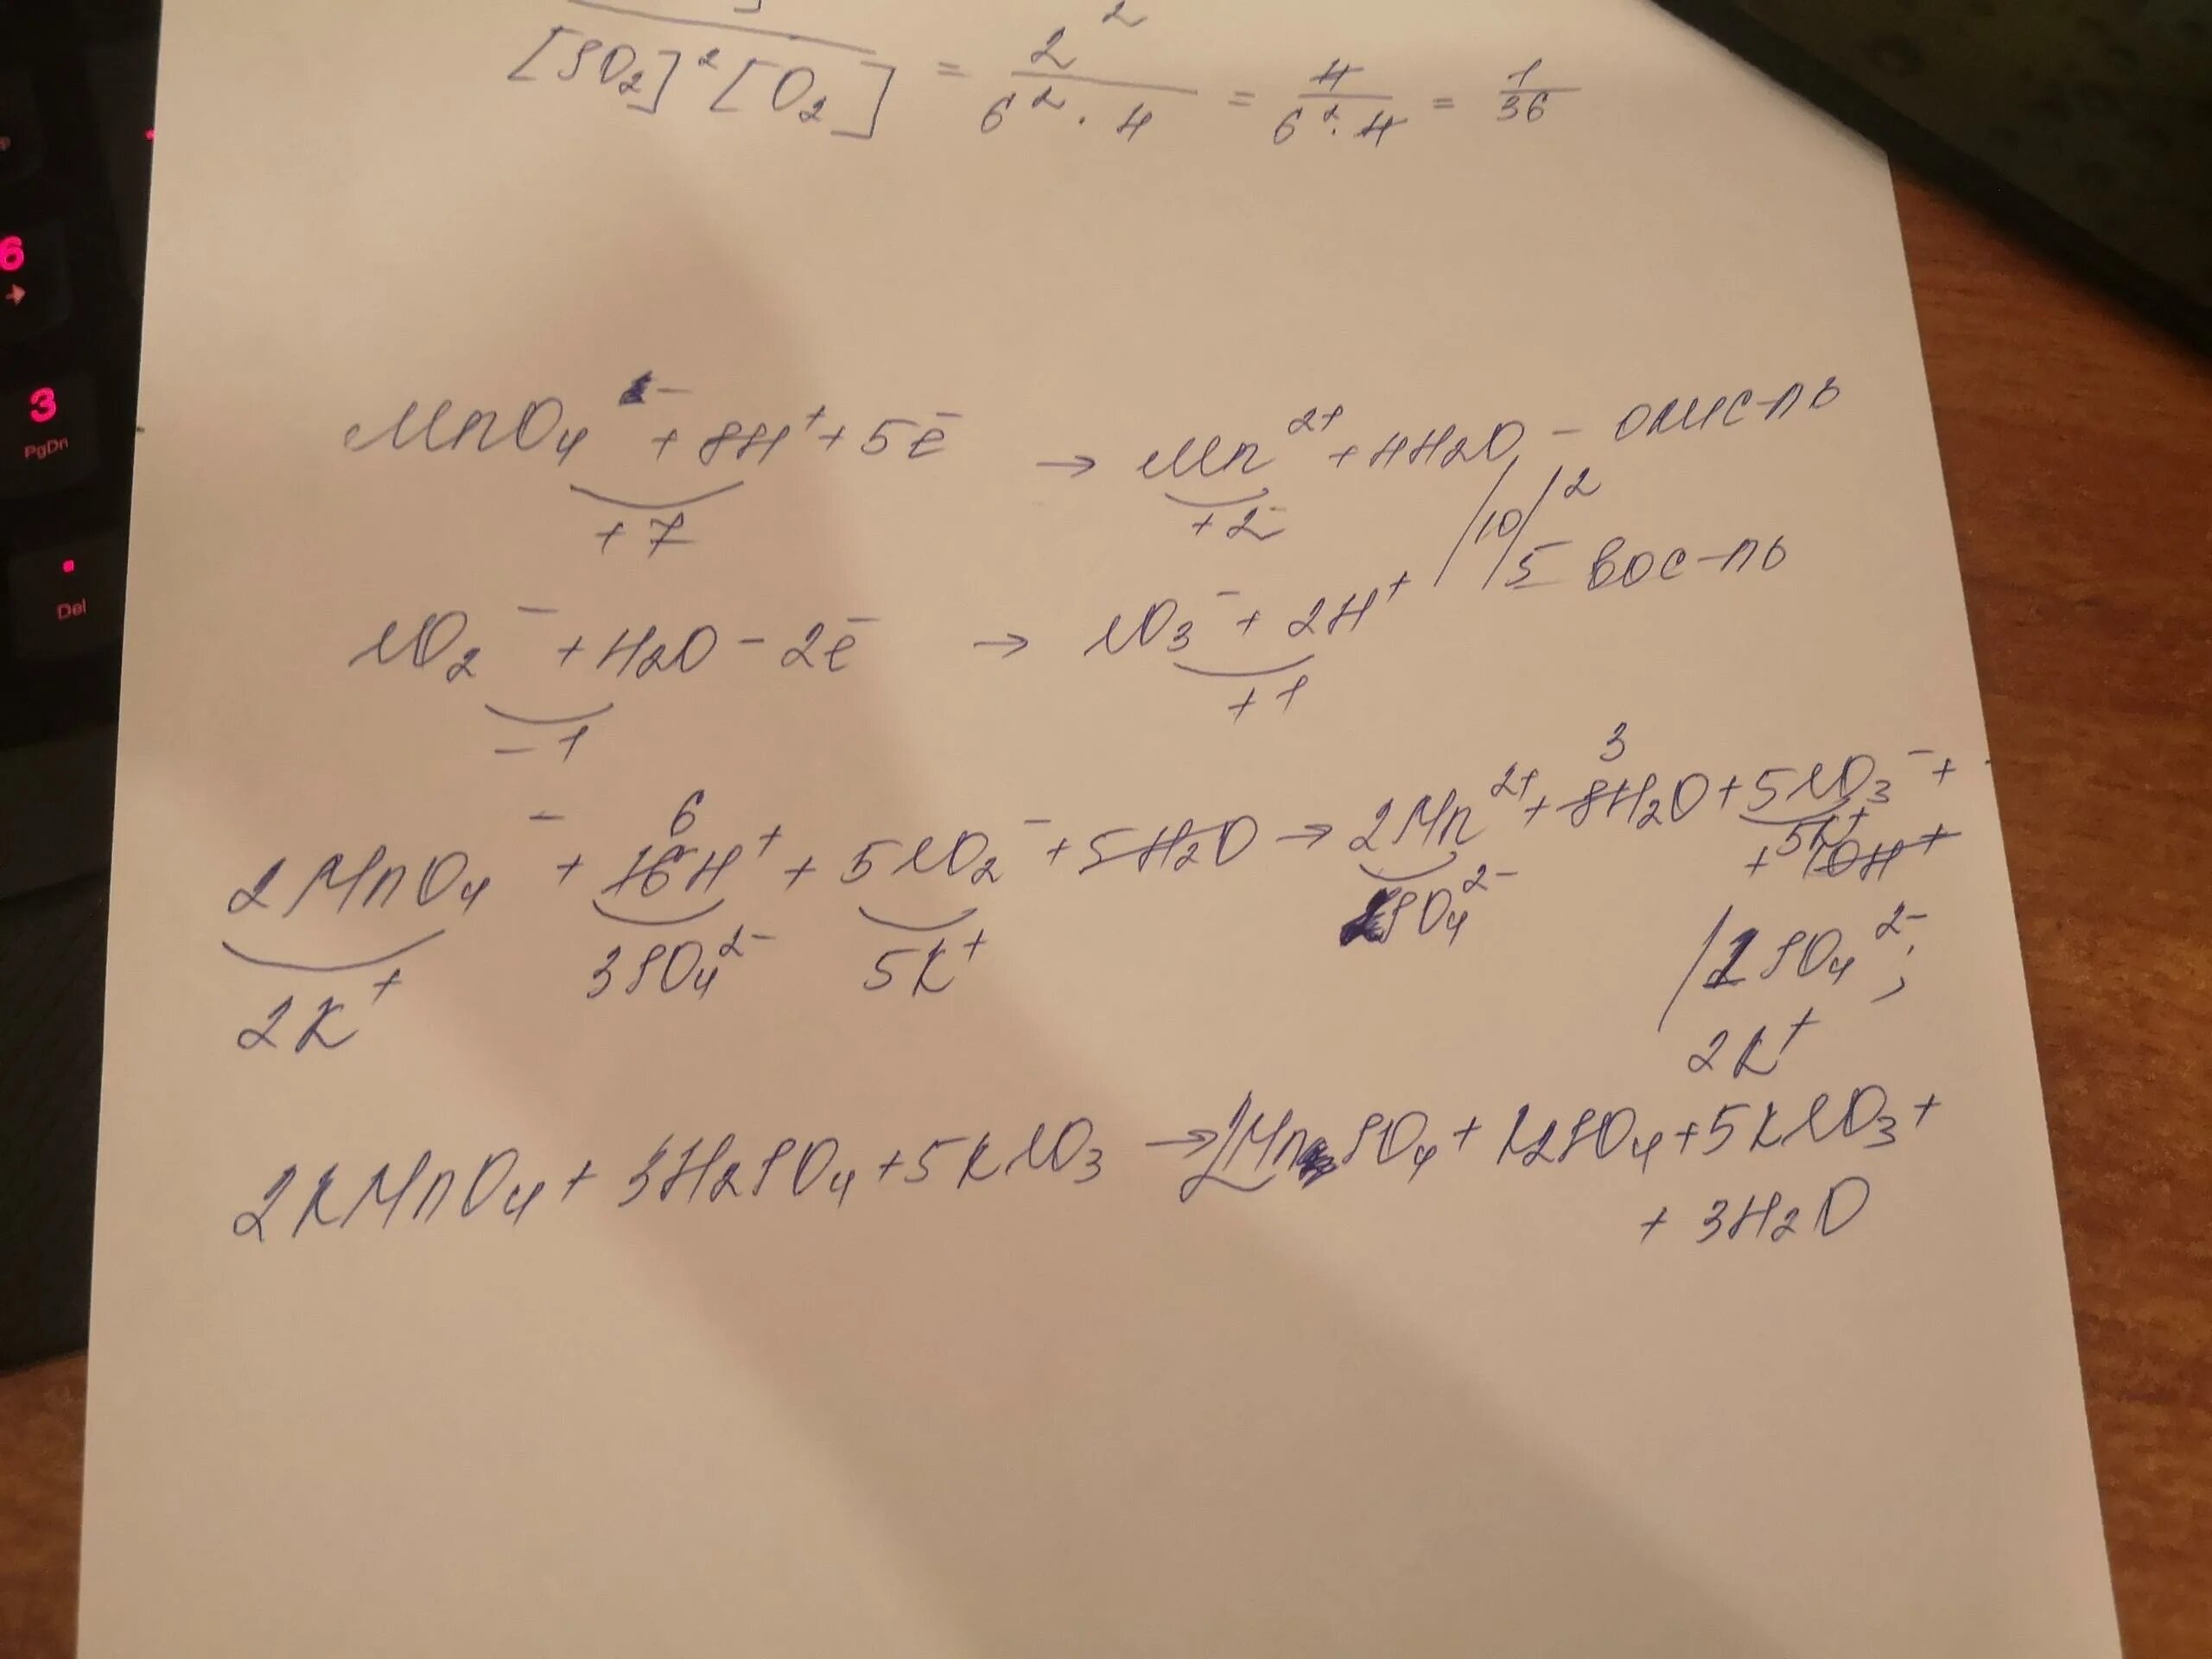 [SO₂]² [O₂] = 2² / 6² · 4 = 4 / 6² · 4 = 1/36
6
3
PgDn
.
Del
MnO₄⁻ + 8H⁺ + 5e⁻ → Mn²⁺ + 4H₂O – окис-ль
+7 +2 /10/ 2
5 вос-ль
NO₂⁻ + H₂O – 2e⁻ → NO₃⁻ + 2H⁺
–1 +1
6 3
2MnO₄⁻ + 16H⁺ + 5NO₂⁻ + 5H₂O → 2Mn²⁺ + 8H₂O + 5NO₃⁻ +
5K⁺
+ 10H⁺
2K⁺ 3SO₄²⁻ 5K⁺ 2SO₄²⁻ / 1SO₄²⁻;
2K⁺
2KMnO₄ + 3H₂SO₄ + 5KNO₃ → 2MnSO₄ + K2SO₄ + 5KNO₃ +
+ 3H₂O